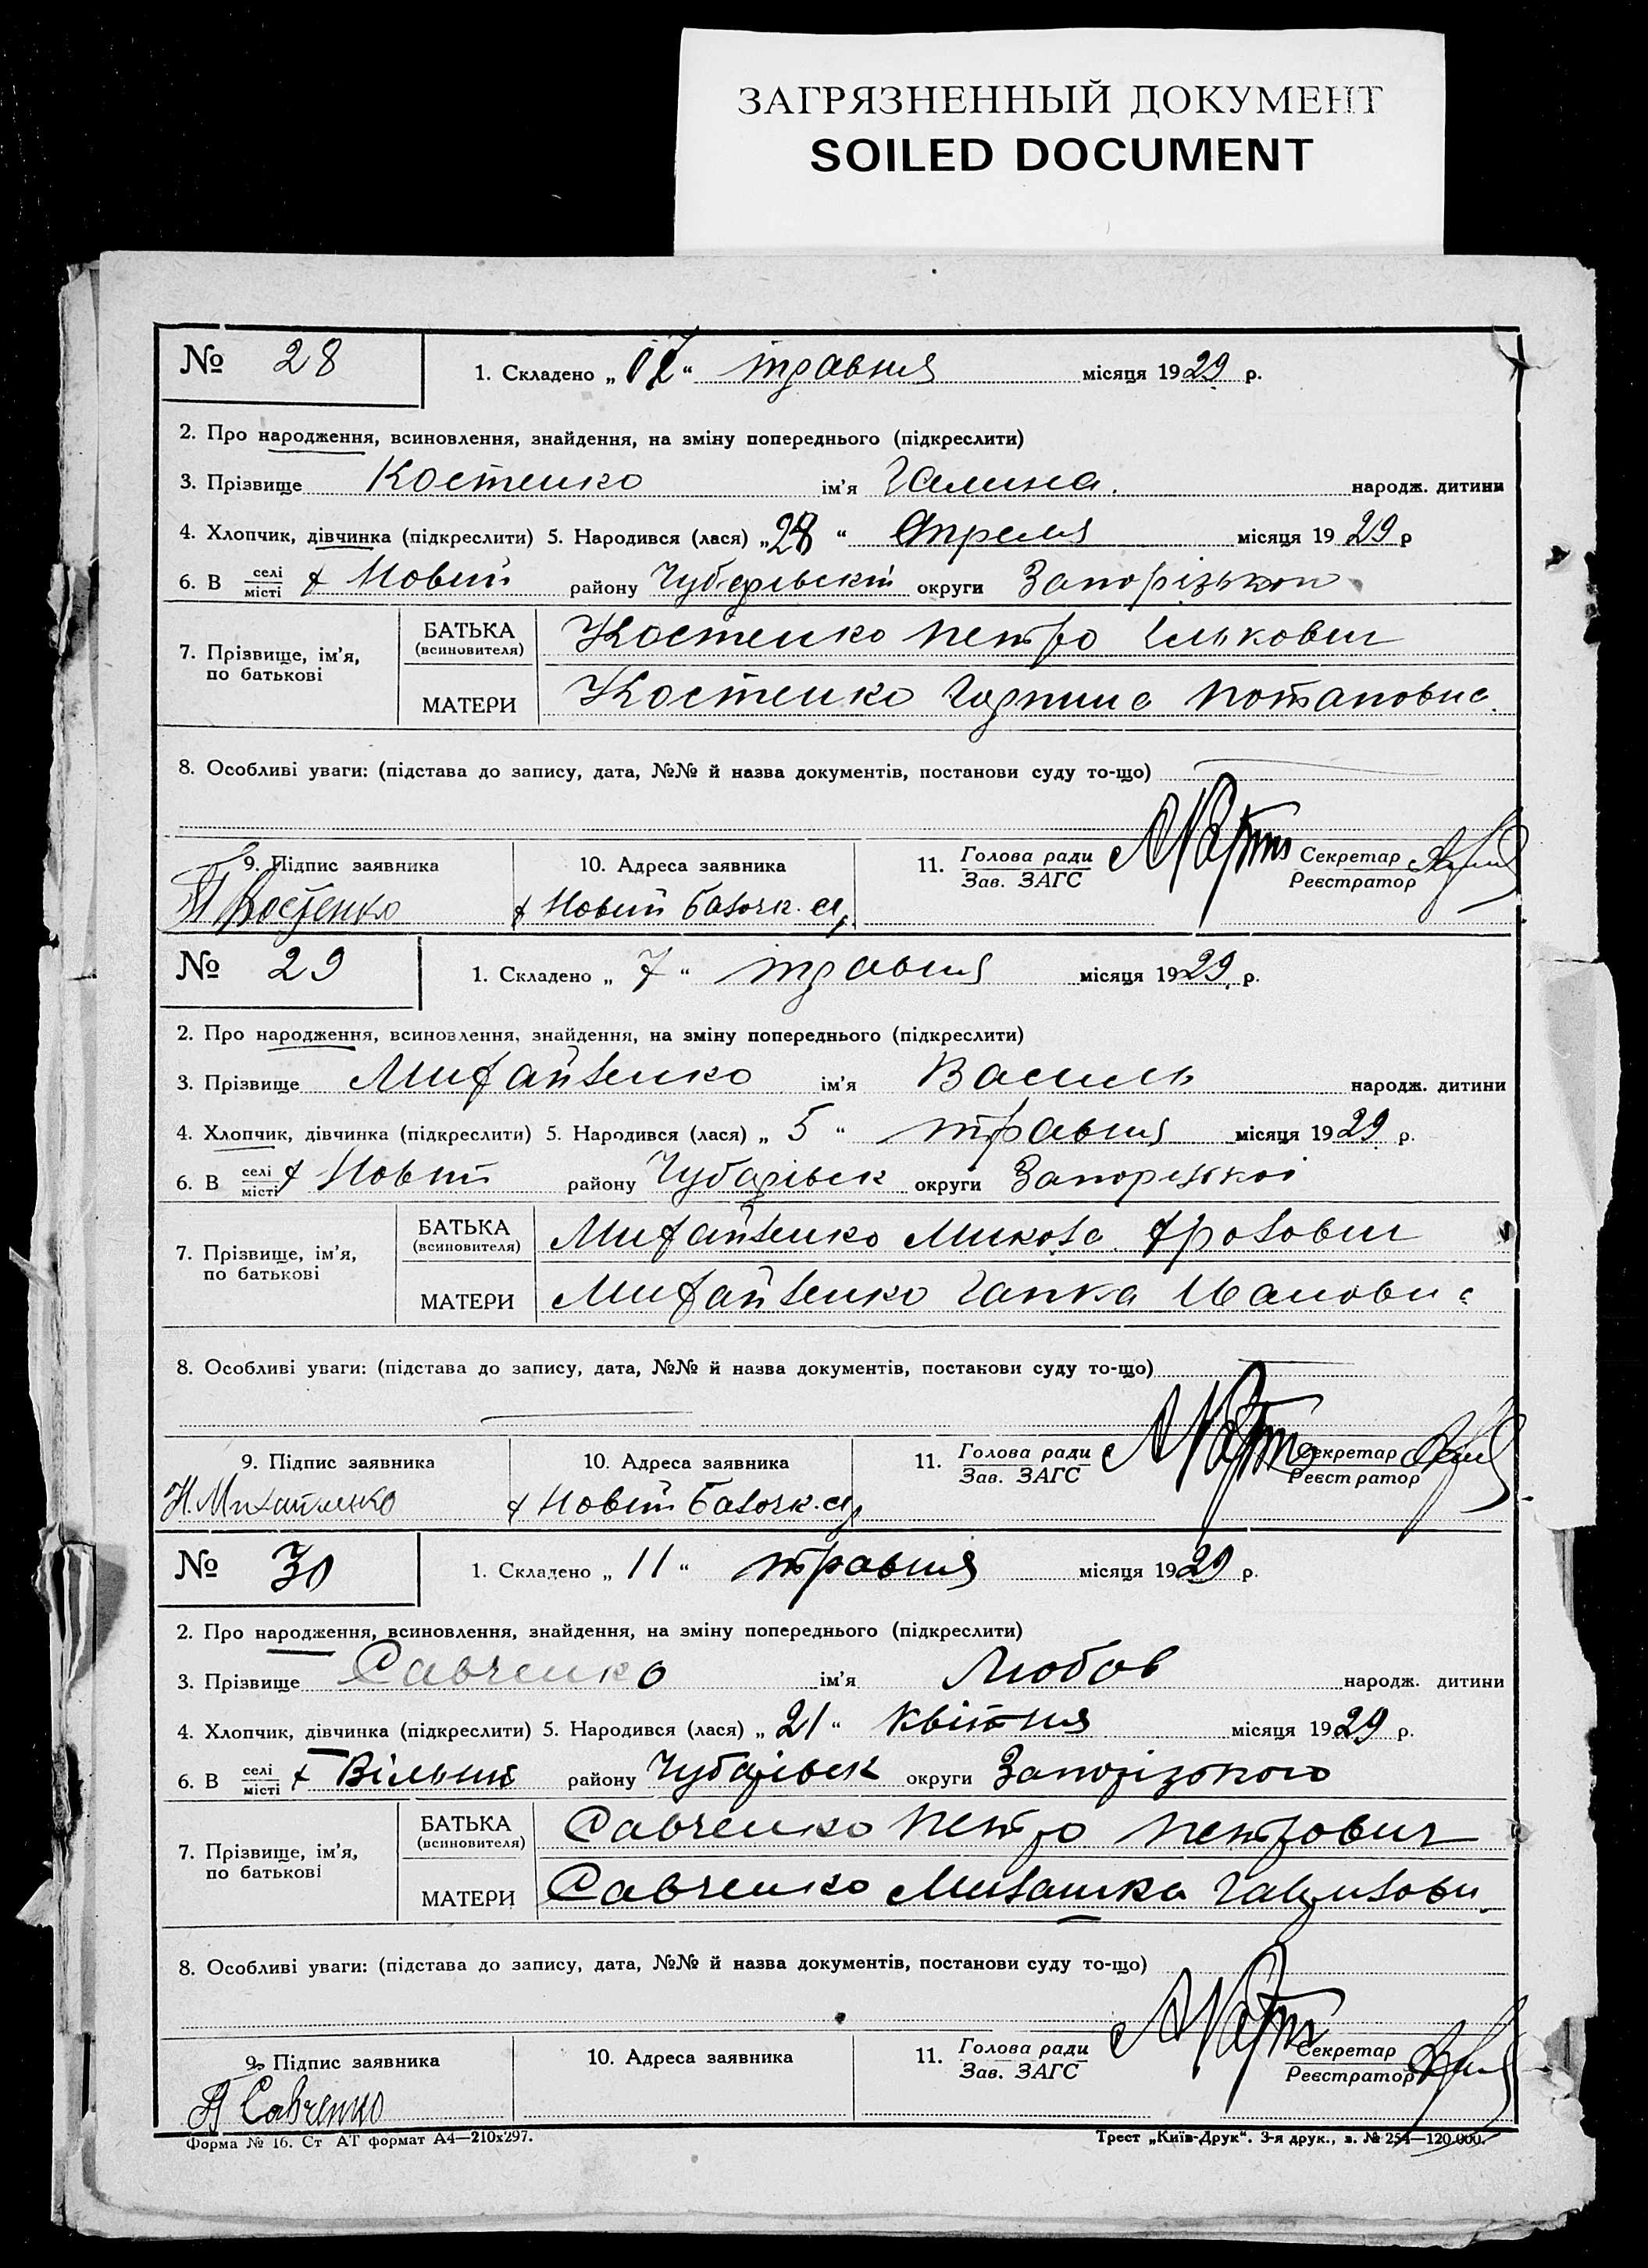 ЗАГРЯЗНЕННЫЙ ДОКУМЕНТ
SOILED DOCUMENT
№ 28
1. Складено „ “ травня місяця 1929 р.
2. Про народження, всиновлення, знайдення, на зміну попереднього (підкреслити)
3. Прізвище Костенко ім’я Галина народж. дитини
4. Хлопчик, дівчинка (підкреслити) 5. Народився (лася) „28“ Апреля місяця 1929 р
6. В селі/місті х Новий району Чубарівській округи Запорізькоп
7. Прізвище, ім’я, по батькові
БАТЬКА (всиновителя) Костенко Петро Ількович
МАТЕРИ Костенко Горпина Потаповна
8. Особливі уваги: (підстава до запису, дата, №№ й назва документів, постанови суду то-що)
9. Підпис заявника
П Костенко
10. Адреса заявника
х Новий Балочк. с/р
11. Голова ради Зав. ЗАГС
Секретар Реєстратор
№ 29
1. Складено „ 7 “ травня місяця 1929 р.
2. Про народження, всиновлення, знайдення, на зміну попереднього (підкреслити)
3. Прізвище Михайленко ім’я Василь народж. дитини
4. Хлопчик, дівчинка (підкреслити) 5. Народився (лася) „ 5 “ травня місяця 1929 р.
6. В селі/місті х Новий району Чубарівськ округи Запорізькоі
7. Прізвище, ім’я, по батькові
БАТЬКА (всиновителя) Михайленко Микола Фролович
МАТЕРИ Михайленко Гапка Ивановна
8. Особливі уваги: (підстава до запису, дата, №№ й назва документів, постанови суду то-що)
9. Підпис заявника
Н. Михайленко
10. Адреса заявника
х Новий Балочк. с/р
11. Голова ради Зав. ЗАГС
Секретар Реєстратор
№ 30
1. Складено „ 11 “ травня місяця 1929 р.
2. Про народження, всиновлення, знайдення, на зміну попереднього (підкреслити)
3. Прізвище Савченко ім’я Любов народж. дитини
4. Хлопчик, дівчинка (підкреслити) 5. Народився (лася) „ 21 “ квітня місяця 1929 р.
6. В селі/місті х Вільний району Чубарівськ округи Запорізького
7. Прізвище, ім’я, по батькові
БАТЬКА (всиновителя) Савченко Петро Петрович
МАТЕРИ Савченко Милашка
8. Особливі уваги: (підстава до запису, дата, №№ й назва документів, постанови суду то-що)
9. Підпис заявника
П Савченко
10. Адреса заявника
11. Голова ради Зав. ЗАГС
Секретар Реєстратор
Форма № 16. Ст АТ формат А4—210х297.
Трест „Київ-Друк“. 3-я друк., з. № 254—120.000.